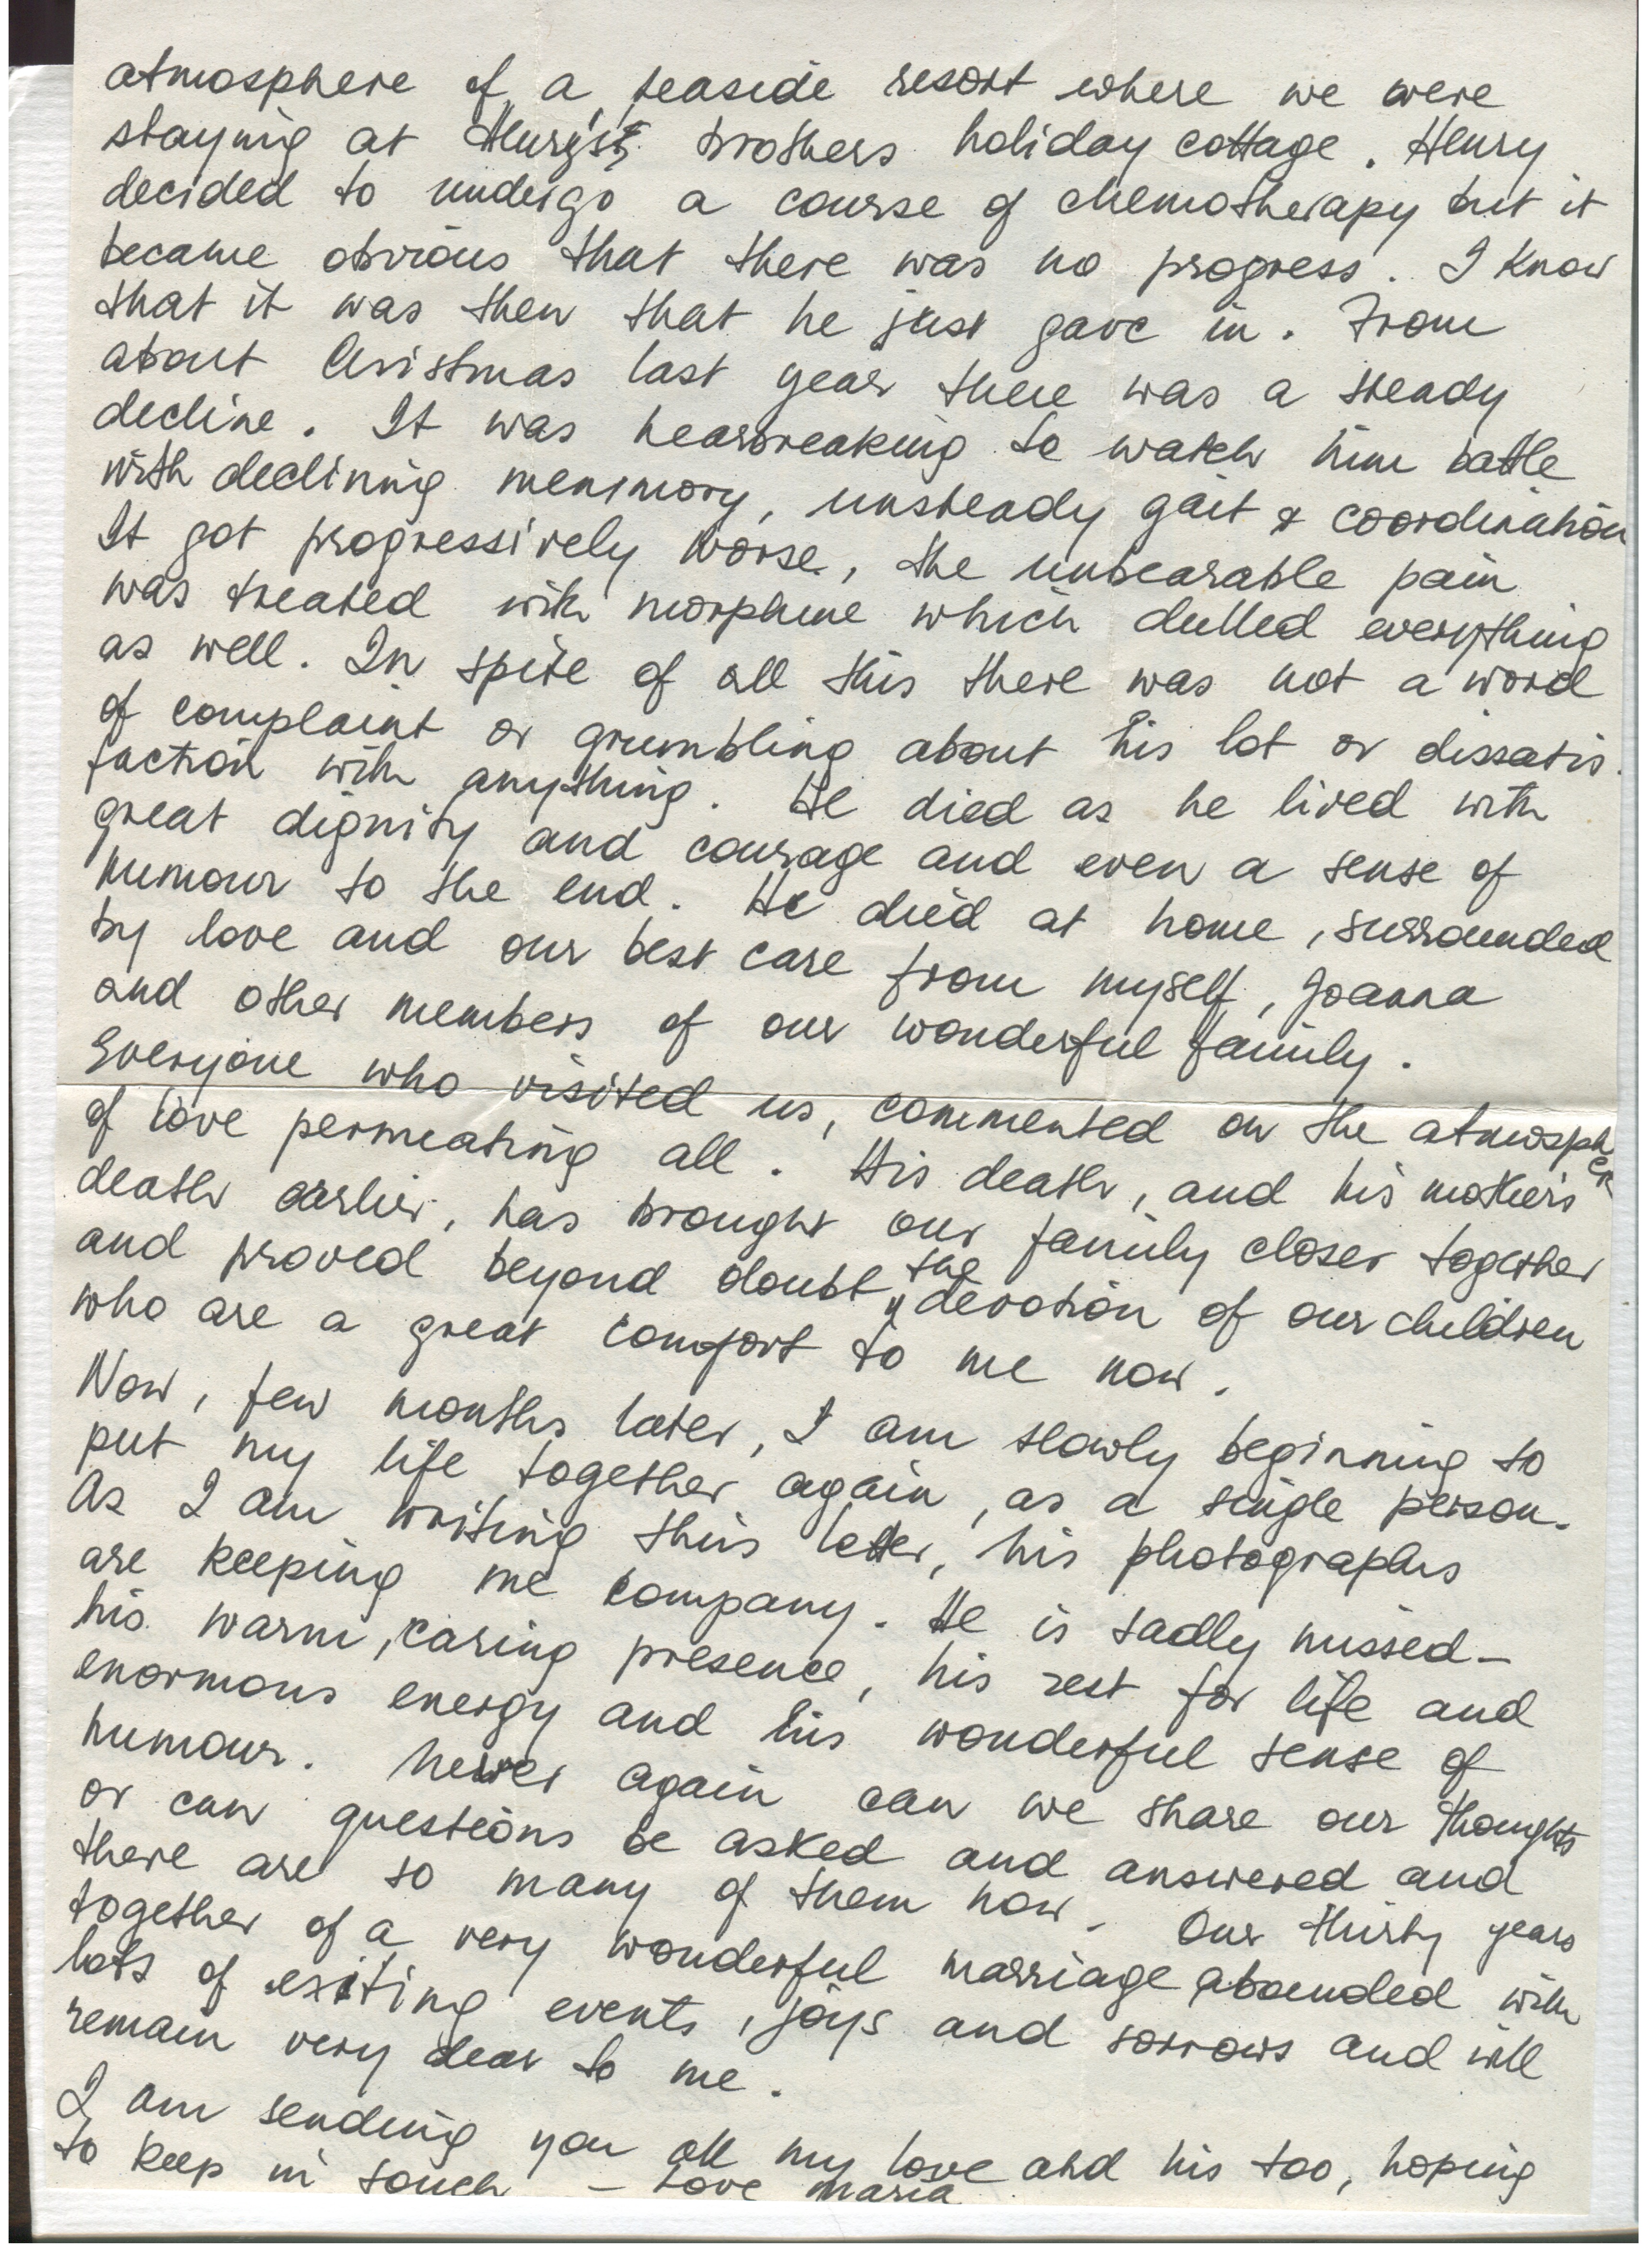 atmosphere of a seaside resort where we were
staying at Henry's brothers holiday cottage. Henry
decided to undergo a course of chemotherapy but it
became obvious that there was no progress. I know
that it was then that he just gave in. From
about Christmas last year there was a steady
decline. It was hearbreaking to watch him battle
with declining memmory, unsteady gait & coordination
It got progressively worse, the unbearable pain
was treated with morphine which dulled everything
as well. In spite of all this there was not a word
of complaint or grumbling about his lot or dissatis.
faction with anything. He died as he lived with
great dignity and courage and even a sense of
humour to the end. He died at home, surrounded
by love and our best care from myself, Joanna
and other members of our wonderful family.
Everyone who visited us, commented on the atmosphere
of love permeating all. His death, and his mother's
death earlier, has brought our family closer together
and proved beyond doubt the devotion of our children
who are a great comfort to me now.
Now, few months later, I am slowly beginning to
put my life together again, as a single person.
As I am writing this letter, his photographs
are keeping me company. He is sadly missed –
his warm, caring presence, his zest for life and
enormous energy and his wonderful sense of
humour. Never again can we share our thoughts
or can questions be asked and answered and
there are so many of them now. Our thirty years
together of a very wonderful marriage abounded with
lots of exiting events, joys and sorrows and will
remain very dear to me.
I am sending you all my love and his too, hoping
to keep in touch – Love Maria